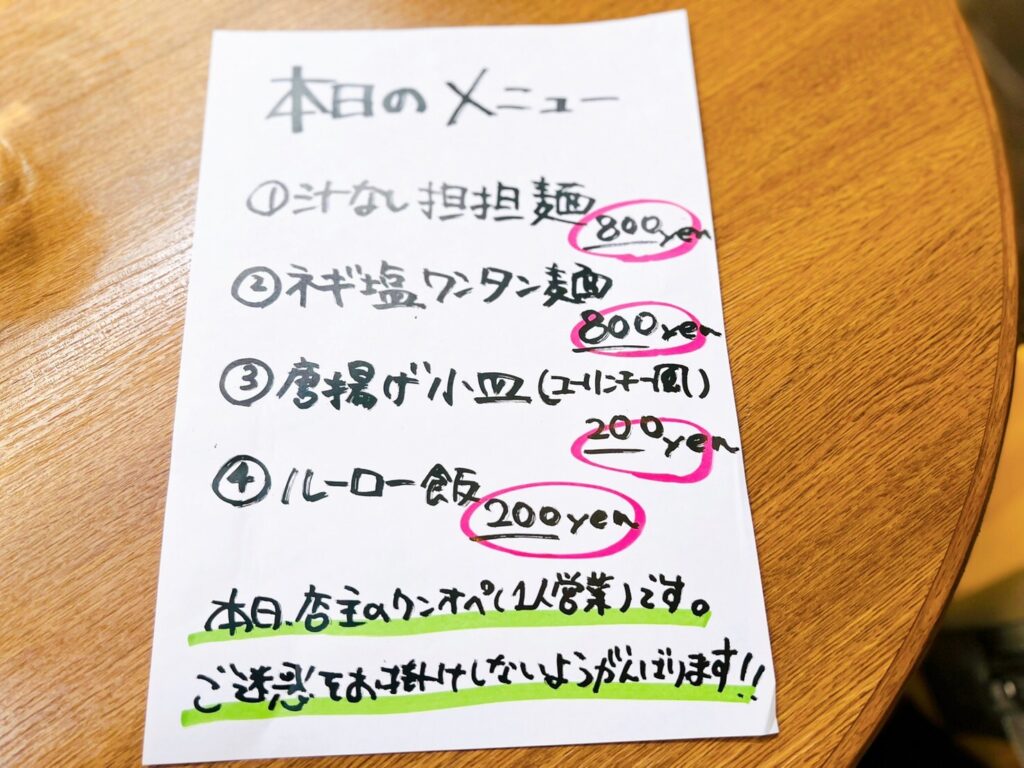 本日のメニュー
①汁なし担担麺
800yen
②ネギ塩ワンタン麺
800yen
③唐揚げ小皿(ユーリンチー風)
200yen
④ルーロー飯
200yen
本日、店主のワンオペ(1人営業)です。
ご迷惑をお掛けしないようがんばります!!